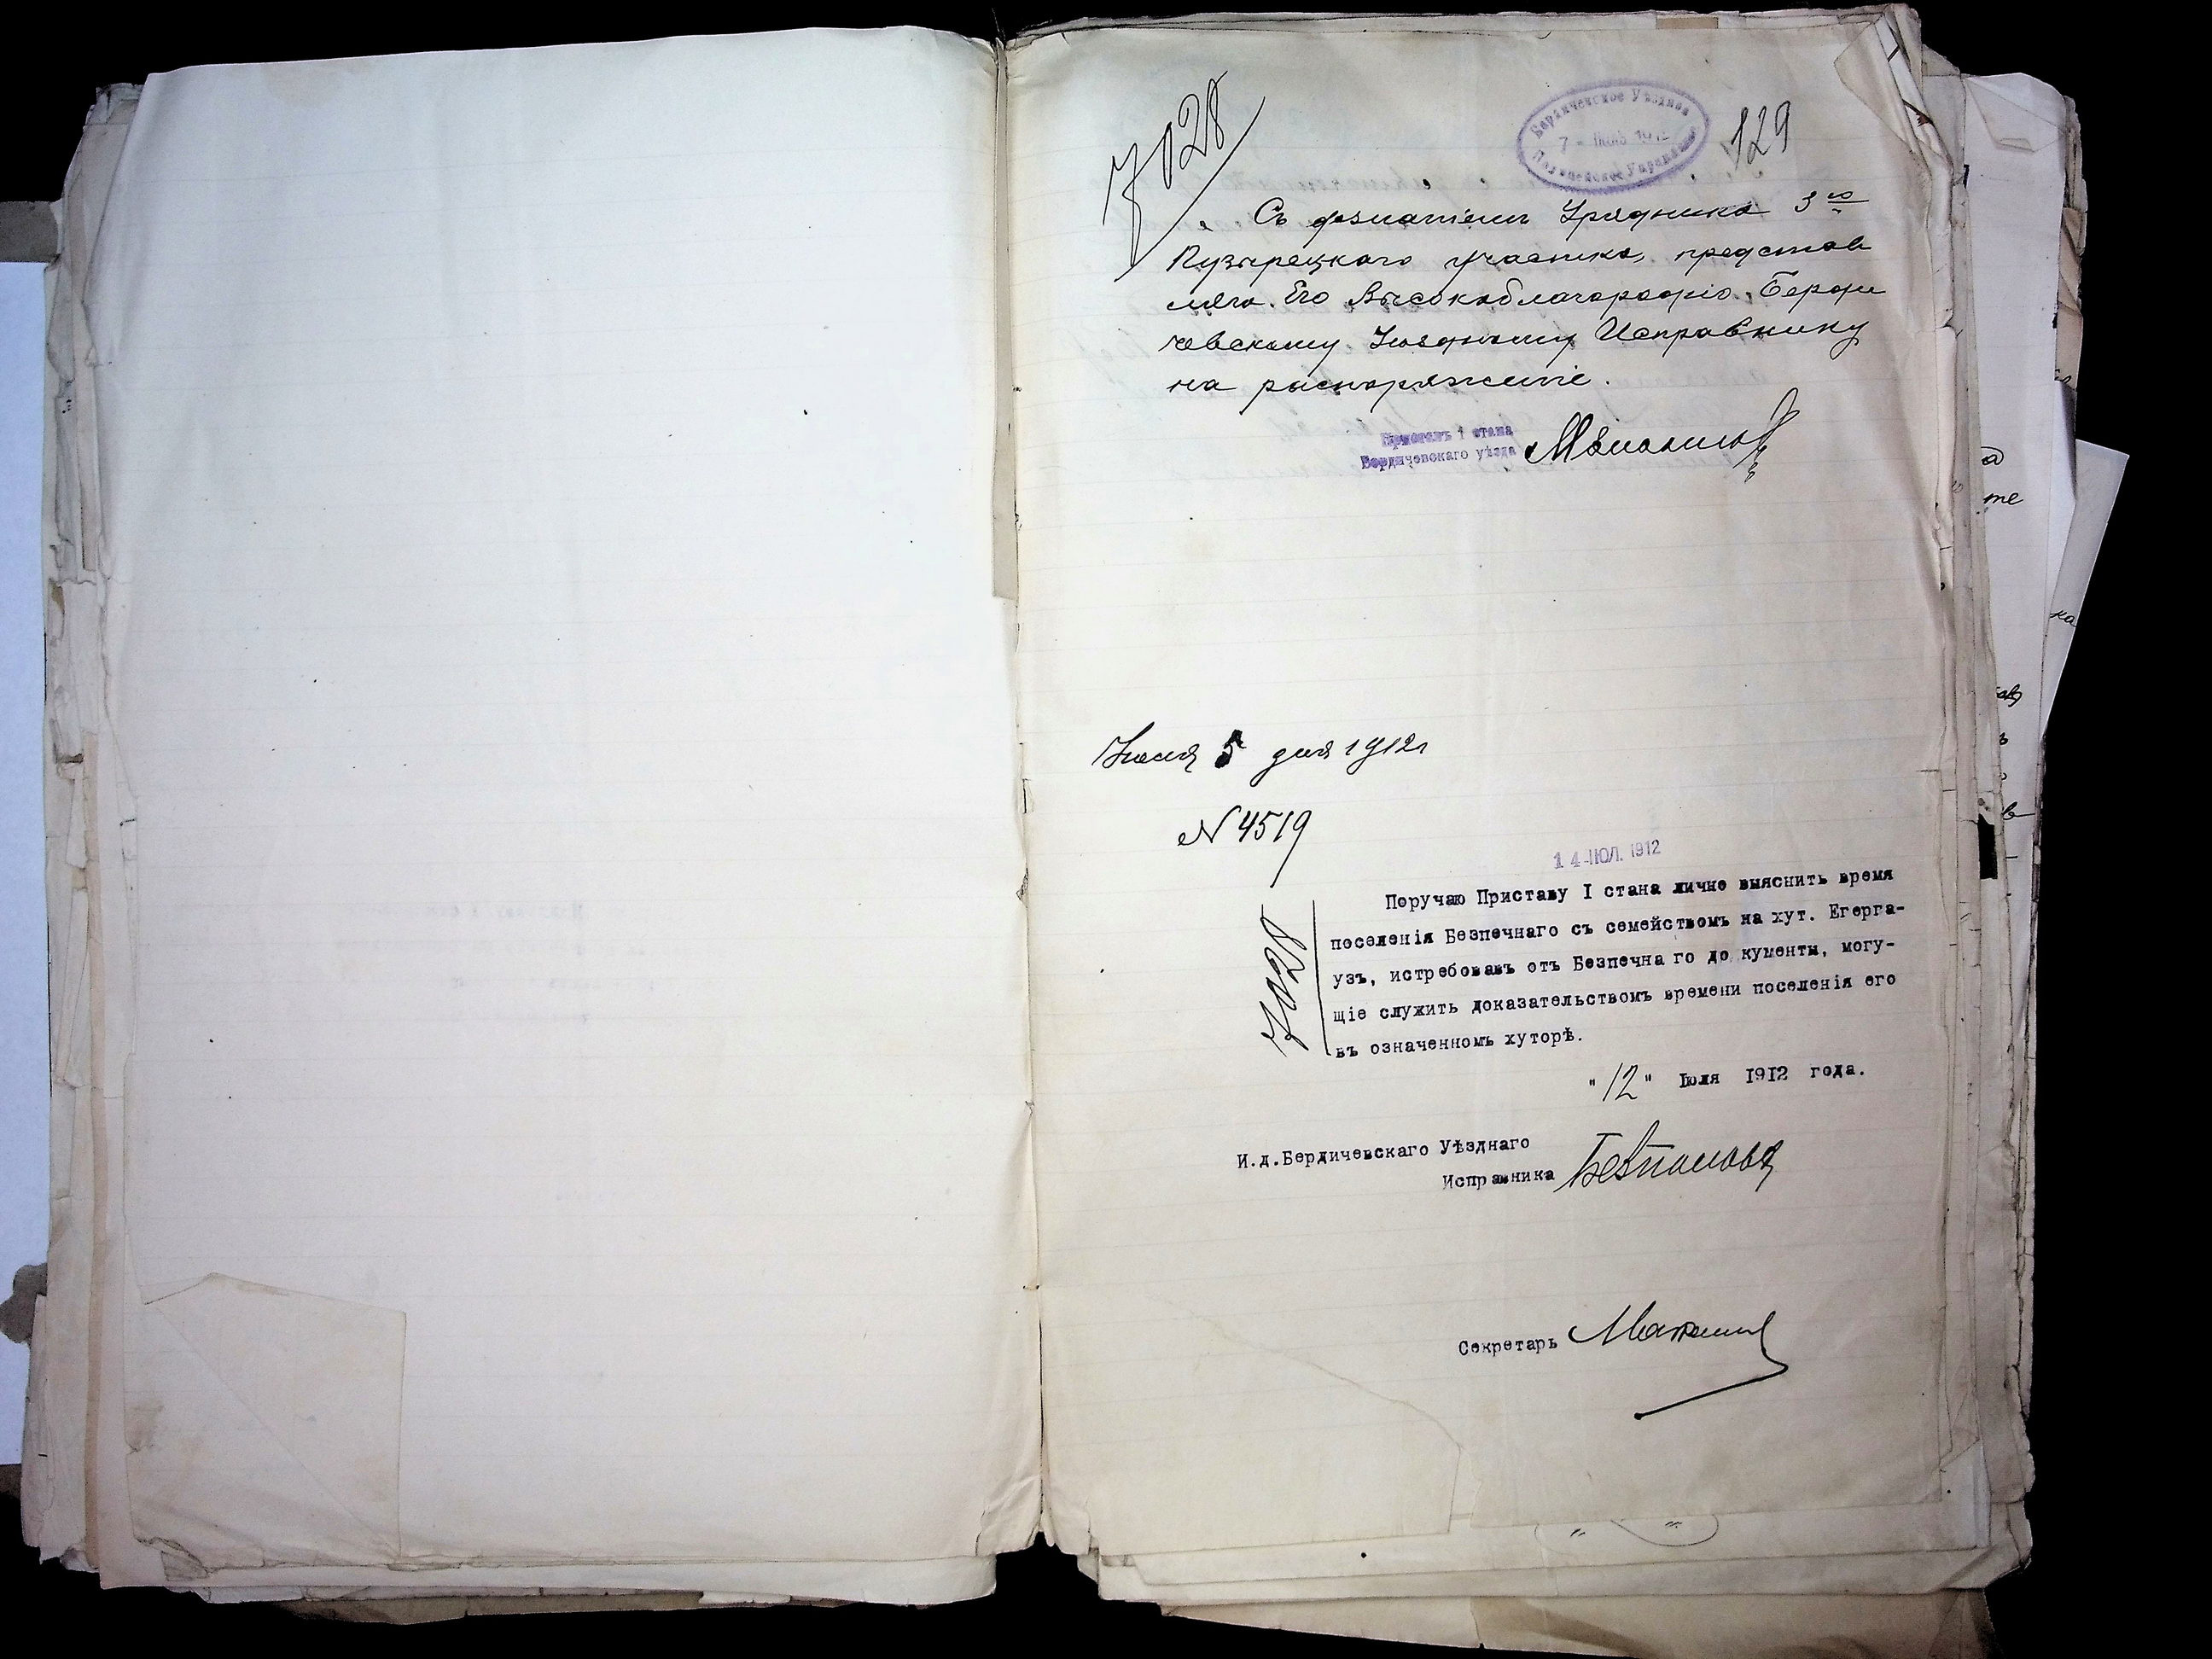 7028
Бердичевское Уѣздное
7 - 1912
Полицейское Управленіе
129
Съ дознаніемъ Урядника 3го
Пузырецкаго участка, представ
ляю Его Высокоблагородію Берди
чевскому Уѣздному Исправнику
на распоряженіе.
Приставъ 1 стана
Бердичевскаго уѣзда
5 дня 1912 г
№ 4519
14 ІЮЛ. 1912
7028
Поручаю Приставу I стана лично выяснить время
поселенія Безпечнаго съ семействомъ на хут. Егерга-
узъ, истребовавъ отъ Безпечна го до кументы, могу-
щіе служить доказательствомъ времени поселенія его
въ означенномъ хуторѣ.
"12" Іюля 1912 года.
И.д.Бердичевскаго Уѣзднаго
Исправника
Секретарь